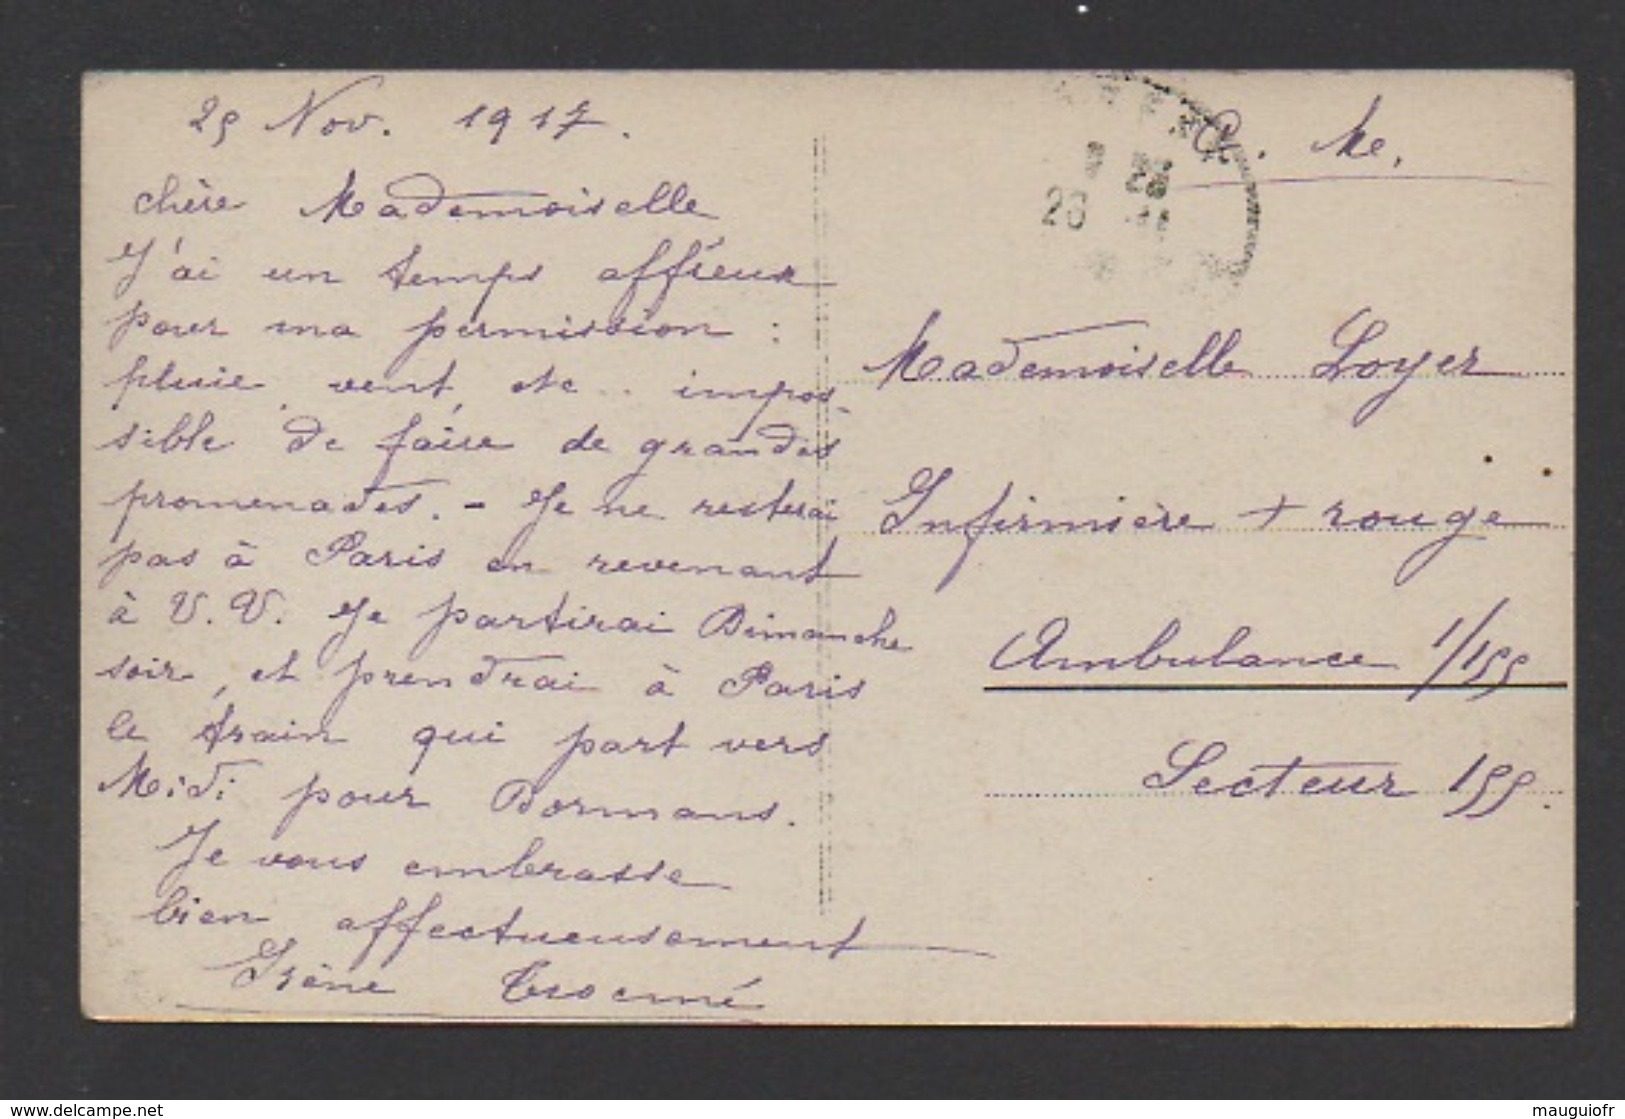 25 Nov. 1917.
chère Mademoiselle
J'ai un temps affreux
pour ma permission :
pluie, vent, etc.. impos
sible de faire de grandes
promenades. - Je ne resterai
pas à Paris en revenant
à V.V. Je partirai Dimanche
soir, et prendrai à Paris
le train qui part vers
Midi pour Dormans.
Je vous embrasse
bien affectueusement
Irène Trocmé
. Me.
28
26
Mademoiselle Loyer
Infirmière + rouge
Ambulance 1/155
Secteur 155.
www.delcampe.net
mauguiofr